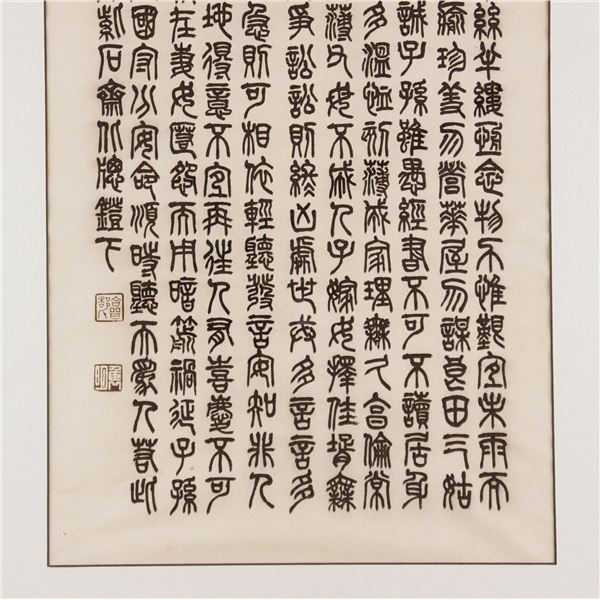 絲半縷恆念物力惟艱宜未雨而
瘉珍羞勿營華屋勿謀良田三姑
誠子孫雖愚經書不可不讀居身
多溫恤刻薄成家理無久享倫常
薄父母不成人子嫁女擇佳壻無
爭訟訟則終凶處世戒多言言多
急則可相依輕聽發言安知非人
地得意不宜再往人有喜慶不可
在妻女匿怨而用暗箭禍延子孫
國守分安命順時聽天爲人若此
紫石齋北牕鐙下